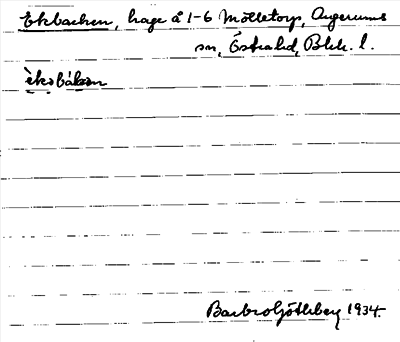 Ekbacken, hage å 1-6 Mölletorp, Augerums
sn, Östra hd, Blek. l.
èkəbákən
Barbro Götheberg 1934.